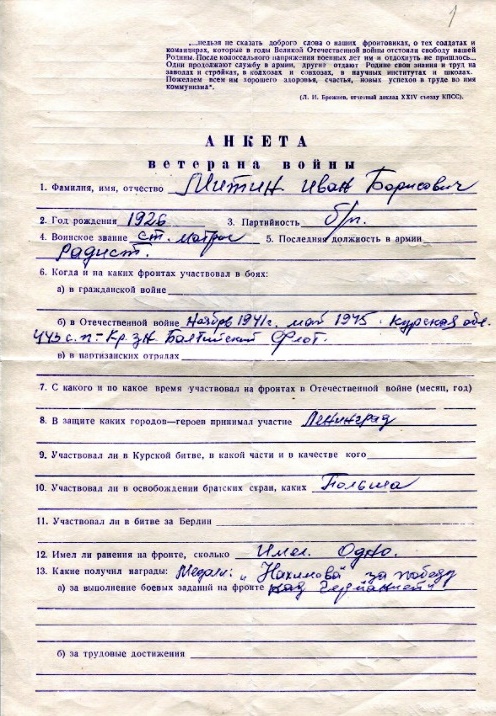 1
„...нельзя не сказать доброго слова о наших фронтовиках, о тех солдатах и
командирах, которые в годы Великой Отечественной войны отстояли свободу нашей
Родины. После колоссального напряжения военных лет им и отдохнуть не пришлось...
Одни продолжают службу в армии, другие отдают Родине свои знания и труд на
заводах и стройках, в колхозах и совхозах, в научных институтах и школах.
Пожелаем всем им хорошего здоровья, счастья, новых успехов в труде во имя
коммунизма“.
(Л. И. Брежнев, отчетный доклад XXIV съезду КПСС).
АНКЕТА
ветерана войны
1. Фамилия, имя, отчество Митин Иван Борисович
2. Год рождения 1926 3. Партийность б/п.
4. Воинское звание ст. матрос 5. Последняя должность в армии
Радист.
6. Когда и на каких фронтах участвовал в боях:
а) в гражданской войне
б) в Отечественной войне Ноябрь 1941г. май 1945. Курская обл.
443 с.п.- Кр.зн. Балтийский Флот.
в) в партизанских отрядах
7. С какого и по какое время участвовал на фронтах в Отечественной войне (месяц, год)
8. В защите каких городов—героев принимал участие Ленинград
9. Участвовал ли в Курской битве, в какой части и в качестве кого
10. Участвовал ли в освобождении братских стран, каких Польша
11. Участвовал ли в битве за Берлин
12. Имел ли ранения на фронте, сколько Имел. Одно.
13. Какие получил награды: Медали: „Нахимова“ „за победу
а) за выполнение боевых заданий на фронте над Германией“
б) за трудовые достижения